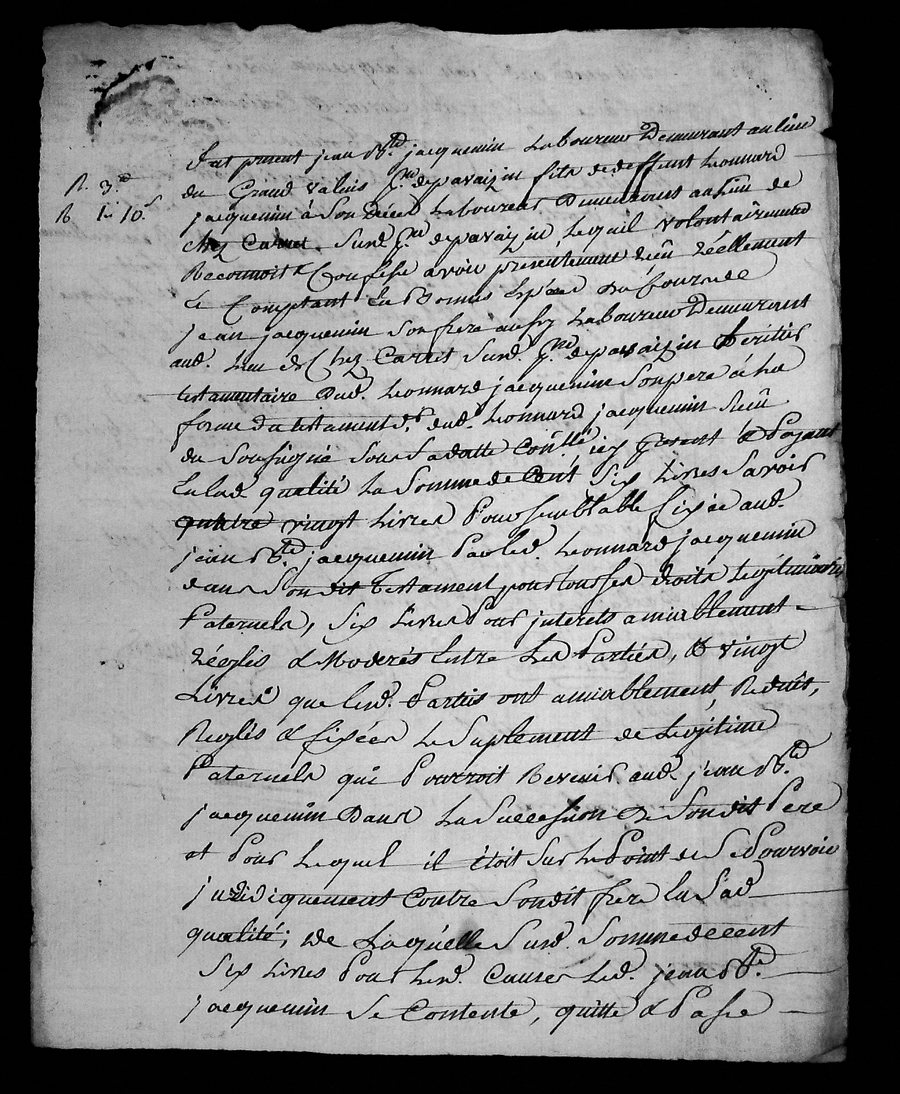 fut présent jean B.te jacquemin Laboureur Demeurant au lieu
R. 3.d
du Grand Valuis p.sse de pavaizin fils de deffunt Leonnard
R 1# 10.s
jacquemin à Son décès Laboureur Demeurant au lieu de
chez Carret Surd. p.sse de pavaizin, Lequel volontairement
Reconnoit & Confesse avoir presentement Reçu Réellement
& Comptant En Bonnes Espèces du
jean jacquemin Son frere aussy Laboureur Demeurant
aud. Lieu de Chez Carret Surd. p.sse de pavaizin heritier
testamentaire dud. Leonnard jacquemin Son pere à La
forme du testament d. dud. Leonnard jacquemin Reçu
du Soussigné Sous Sa datte Con.llé icy present & Payant
En lad. qualité La Somme de Cent Six Livres Savoir
quatre vingt Livres Pour semblable fixée aud.
jean B.te jacquemin Par led. Leonnard jacquemin
dans Son dit Testament pour tous ses droits Legitimaires
Paternels, Six Livres Pour interets amiablement
Réglés & Moderés Entre Les Parties, & vingt
Livres que lesd. Parties ont amiablement, Reduit,
Reglés & fixées Le Suplement de Legitime
Paternels qui Pourroit Revenir aud. jean B.te
jacquemin Dans La Succession de Son dit Pere
et Pour Lequel il étoit Sur Le Point de Se Pourvoir
judidiquement Contre Son dit frere En Sad
qualité; De Laquelle Surd. Somme de cent
Six Livres Pour Lesd. Causes Led. jean B.te
jacquemin Se Contente, quitte & Passe